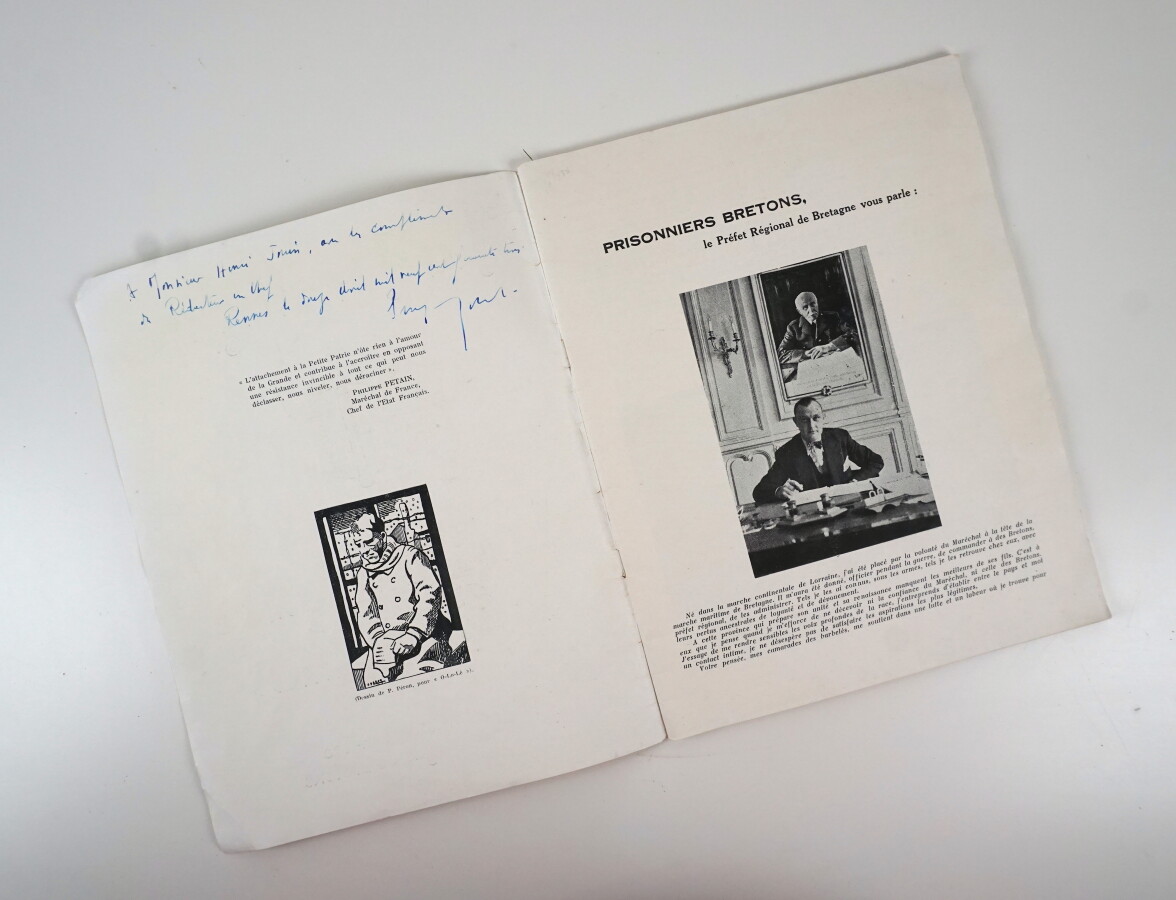 A Monsieur Henri                , avec les compliments
du Rédacteur en Chef
Rennes le douze                mil neuf cent quarante trois.
« L'attachement à la Petite Patrie n'ôte rien à l'amour
de la Grande et contribue à l'accroître en opposant
une résistance invincible à tout ce qui peut nous
déclasser, nous niveler, nous déraciner ».
PHILIPPE PETAIN,
Maréchal de France,
Chef de l'Etat Français.
(Dessin de P. Péron, pour « O-Lo-Lê »).
PRISONNIERS BRETONS,
le Préfet Régional de Bretagne vous parle :
Né dans la marche continentale de Lorraine, j'ai été placé par la volonté du Maréchal à la tête de la
marche maritime de Bretagne. Il m'aura été donné, officier pendant la guerre, de commander à des Bretons,
préfet régional, de les administrer. Tels je les ai connus, sous les armes, tels je les retrouve chez eux, avec
leurs vertus ancestrales de loyauté et de dévouement.
A cette province qui prépare son unité et sa renaissance manquent les meilleurs de ses fils. C'est à
eux que je pense quand je m'efforce de ne décevoir ni la confiance du Maréchal, ni celle des Bretons.
J'essaye de me rendre sensibles les voix profondes de la race, j'entreprends d'établir entre le pays et moi
un contact intime, je ne désespère pas de satisfaire les aspirations les plus légitimes.
Votre pensée, mes camarades des barbelés, me soutient dans une lutte et un labeur où je trouve pour